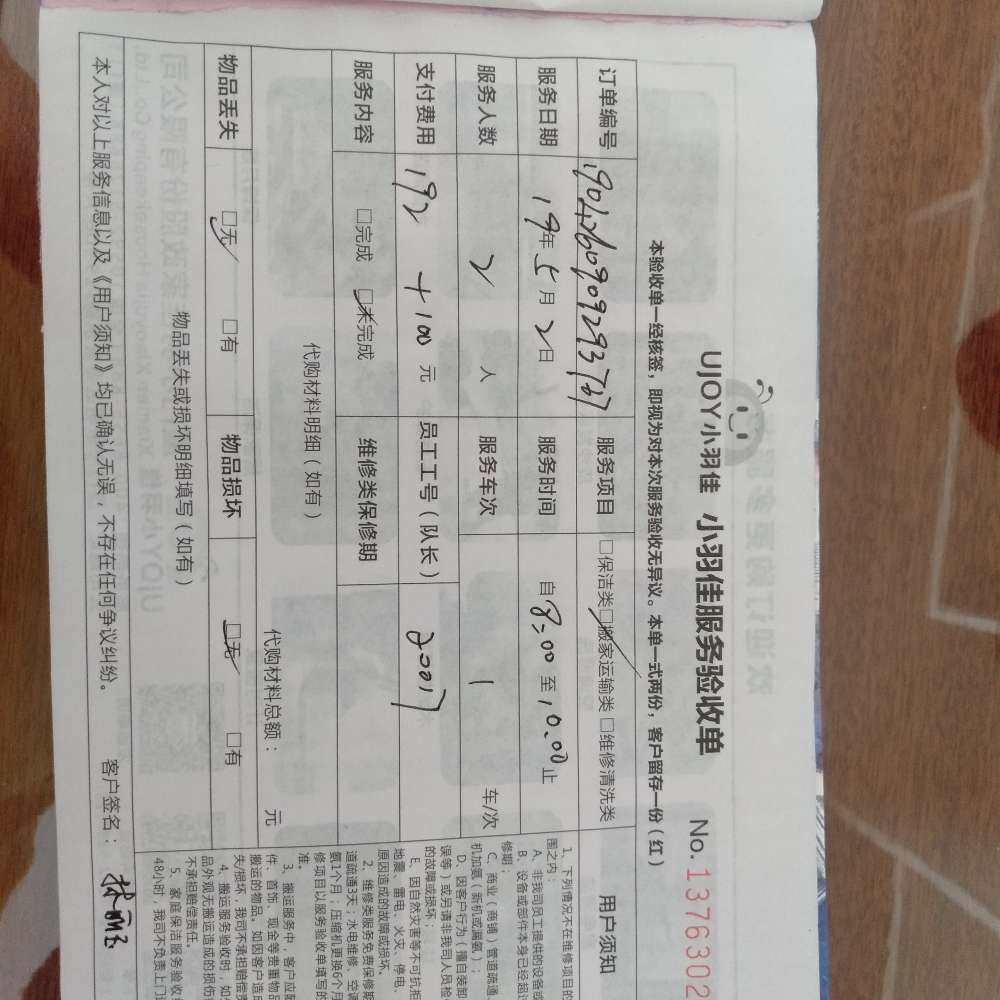 UJOY小羽佳 小羽佳服务验收单 No. 1376302
本验收单一经核签，即视为对本次服务验收无异议。本单一式两份，客户留存一份（红）
订单编号 服务项目 □保洁类 □搬家运输类 □维修清洗类
服务日期 19年5月2日 服务时间 自8:00至10:00止
服务人数 2 人 服务车次 1 车/次
支付费用 192+100 元 员工工号（队长） 20017
服务内容 □完成 □未完成 维修类保修期
代购材料明细（如有） 代购材料总额： 元
物品丢失 □无 □有 物品损坏 □无 □有
物品丢失或损坏明细填写（如有）
本人对以上服务信息以及《用户须知》均已确认无误，不存在任何争议纠纷。 客户签名：
用户须知
1、下列情况不在维修项目的
围之内：
A、非我司员工提供的设备或
B、设备或部件本身已经超过
修期；
C、商业（商铺）管道疏通
机加氨（新机或漏氨）；
D、因客户行为（擅自装卸
误等）或另请非我司人员检
的故障或损坏；
E、因自然灾害等不可抗拒
地震、雷电、火灾、停电、
原因造成的故障或损坏。
2、维修类服务免费保修期
道疏通3天；水电维修、空调
氨1个月；压缩机更换6个月
修项目以服务验收单填写的
准。
3、搬运服务中，客户应
件、首饰、现金等贵重物品
搬运的物品，如因客户造成
失/损坏，我司不承担赔偿责
4、搬运服务验收时，如
品外观无搬运造成的损伤
不承担赔偿责任。
5、家庭保洁服务验收
48小时，我司不负责上门